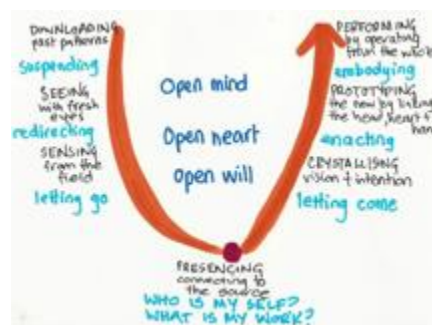 DOWNLOADING
past patterns
suspending
SEEING
with fresh
eyes
redirecting
SENSING
from the
field
letting go
Open mind
Open heart
Open will
PERFORMING
by operating
from the whole
embodying
PROTOTYPING
the new by linking
the head, heart &
hand
enacting
CRYSTALLISING
vision + intention
letting come
PRESENCING
connecting to
the source
WHO IS MY SELF?
WHAT IS MY WORK?